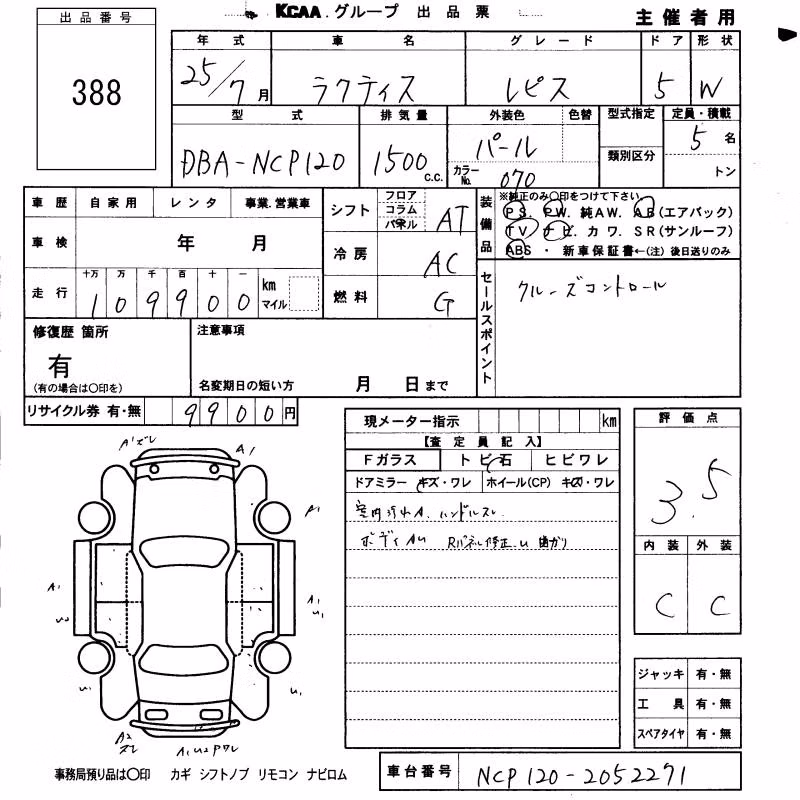 KCAA.グループ 出品票
主催者用
出品番号
388
年式 車名 グレード ドア 形状
25/7月 ラクティス レピス 5 W
型式 排気量 外装色 色替 型式指定 定員・積載
DBA-NCP120 1500c.c. パール 類別区分 5名
カラーNo. 070 トン
車歴 自家用 レンタ 事業.営業車
シフト フロア コラム パネル AT
装備品 ※純正のみ○印をつけて下さい
PS. PW. 純AW. AB(エアバック)
TV ナビ. カワ. SR(サンルーフ)
ABS ・ 新車保証書←(注) 後日送りのみ
車検 年 月
冷房 AC
走行 十万 万 千 百 十 一
109900 km マイル
燃料 G
セールスポイント
クルーズコントロール
修復歴 箇所
有
(有の場合は○印を)
注意事項
名変期日の短い方 月 日まで
リサイクル券 有・無 9900円
現メーター指示 km
【査定員記入】
Fガラス トビ石 ヒビワレ
ドアミラー キズ・ワレ ホイール(CP) キズ・ワレ
室内汚れA. ハンドルスレ
ボディAU Rパネル修正.U 曲がり
評価点
3.5
内装 外装
C C
ジャッキ 有・無
工具 有・無
スペアタイヤ 有・無
A1ズレ A1
A1
A1 A1 U1
U1 U1
A2 ズレ A1U2Pワレ
事務局預り品は○印 カギ シフトノブ リモコン ナビロム
車台番号 NCP120-2052271